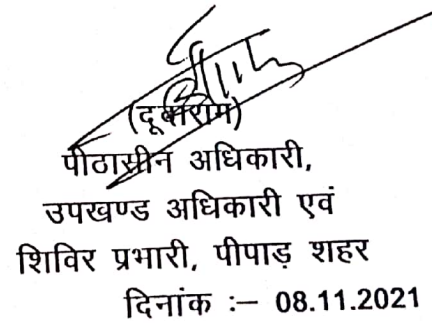 (दूबाराम)
पीठासीन अधिकारी,
उपखण्ड अधिकारी एवं
शिविर प्रभारी, पीपाड़ शहर
दिनांक :– 08.11.2021